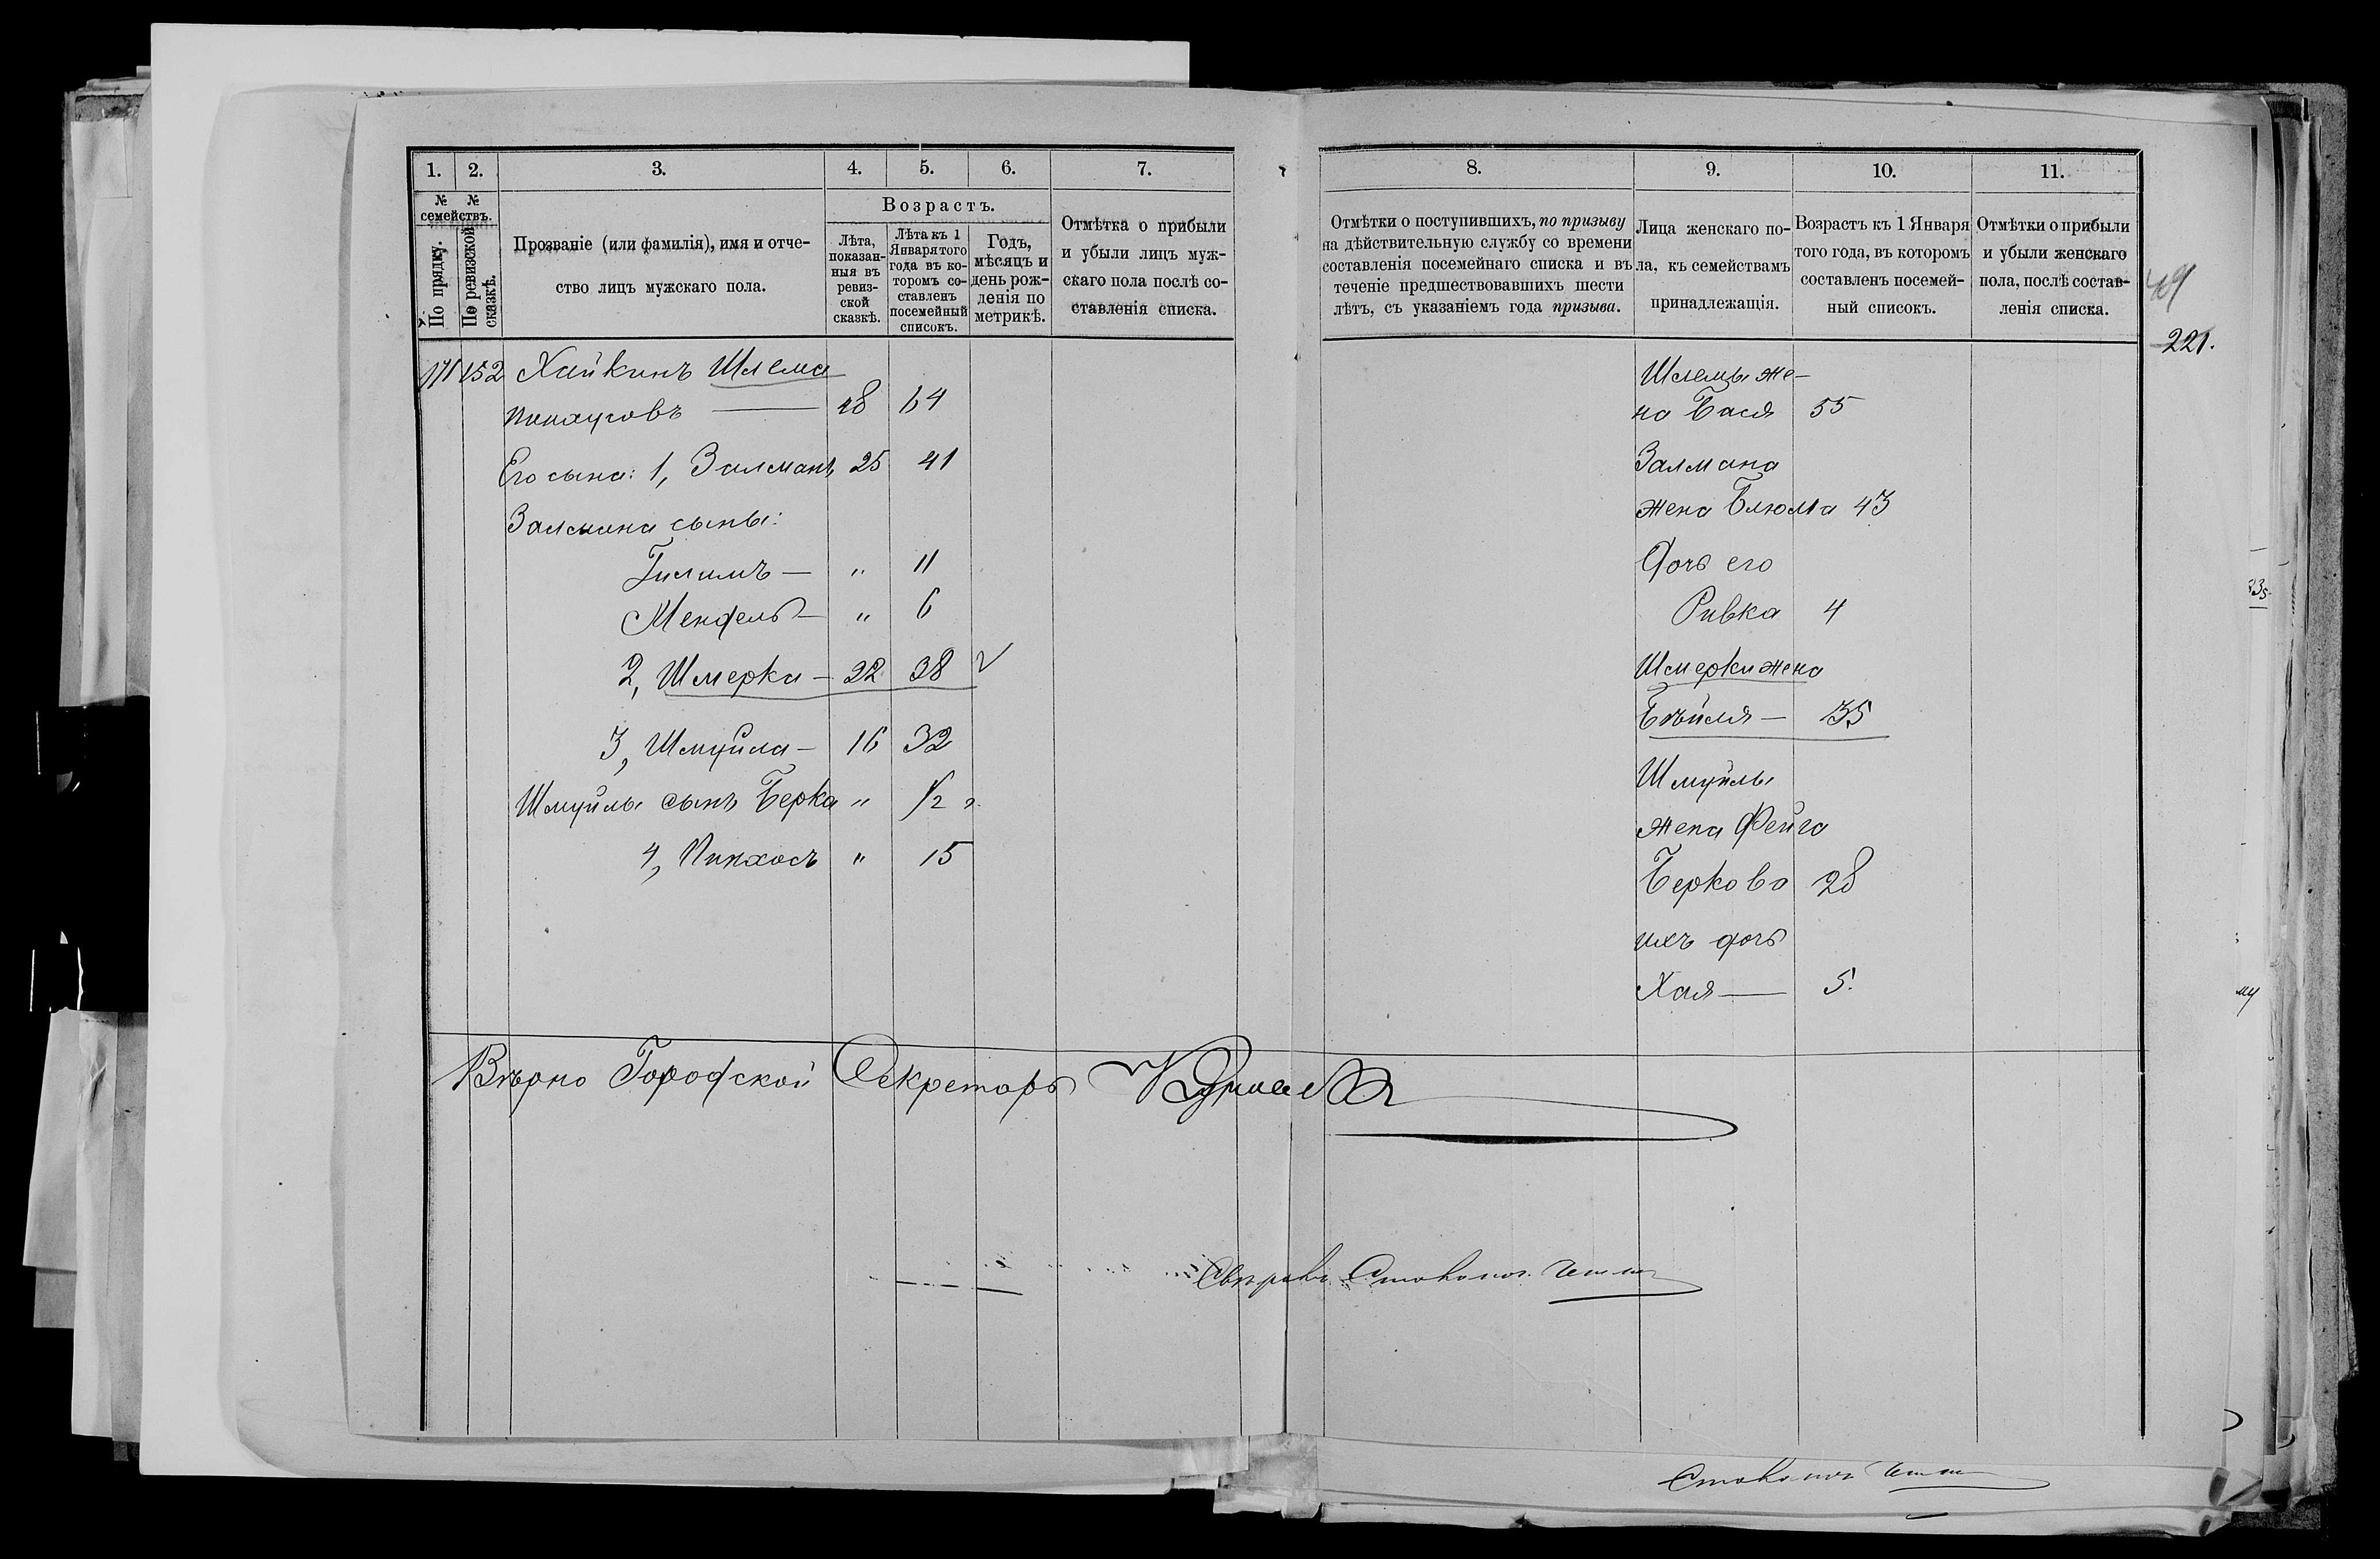 1. 2. 3. 4. 5. 6. 7.
№ № семействъ.
По прядку.
По ревизской сказкѣ.
Прозваніе (или фамилія), имя и отче-
ство лицъ мужскаго пола.
Возрастъ.
Лѣта,
показан-
ныя въ
ревиз-
ской
сказкѣ.
Лѣта къ 1
Января того
года въ ко-
торомъ со-
ставленъ
посемейный
списокъ.
Годъ,
мѣсяцъ и
день рож-
денія по
метрикѣ.
Отмѣтка о прибыли
и убыли лицъ муж-
скаго пола послѣ со-
ставленія списка.
171 152 Хайкинъ Шлема
Пинхусовъ — 48 64
Его сына: 1, Залманъ 25 41
Залмана сыны:
Гилимъ — " 11
Мендель — " 6
2, Шмерка — 22 38 √
3, Шмуйла — 16 32
Шмуйлы сынъ Берка " 1/2
4, Пинхосъ " 15
Вѣрно Городской Секретарь
8. 9. 10. 11.
Отмѣтки о поступившихъ, по призыву
на дѣйствительную службу со времени
составленія посемейнаго списка и въ
теченіе предшествовавшихъ шести
лѣтъ, съ указаніемъ года призыва.
Лица женскаго по-
ла, къ семействамъ
принадлежащія.
Возрастъ къ 1 Января
того года, въ которомъ
составленъ посемей-
ный списокъ.
Отмѣтки о прибыли
и убыли женскаго
пола, послѣ состав-
ленія списка.
221.
Шлемы же-
на Бася 55
Залмана
жена Блюма 43
Дочь его
Ривка 4
Шмерки жена
Бейля — 35
Шмуйлы
жена Фейга
Беркова 28
ихъ дочь
Хая — 5.